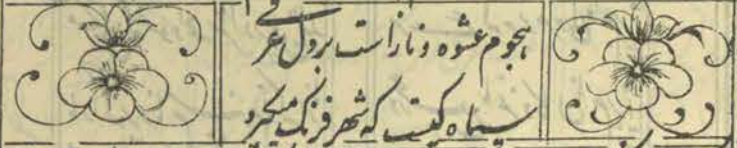 هجوم عشوه و ناز است بر دل عرفی
سپاه کیست که شهر فرنگ میگیرد